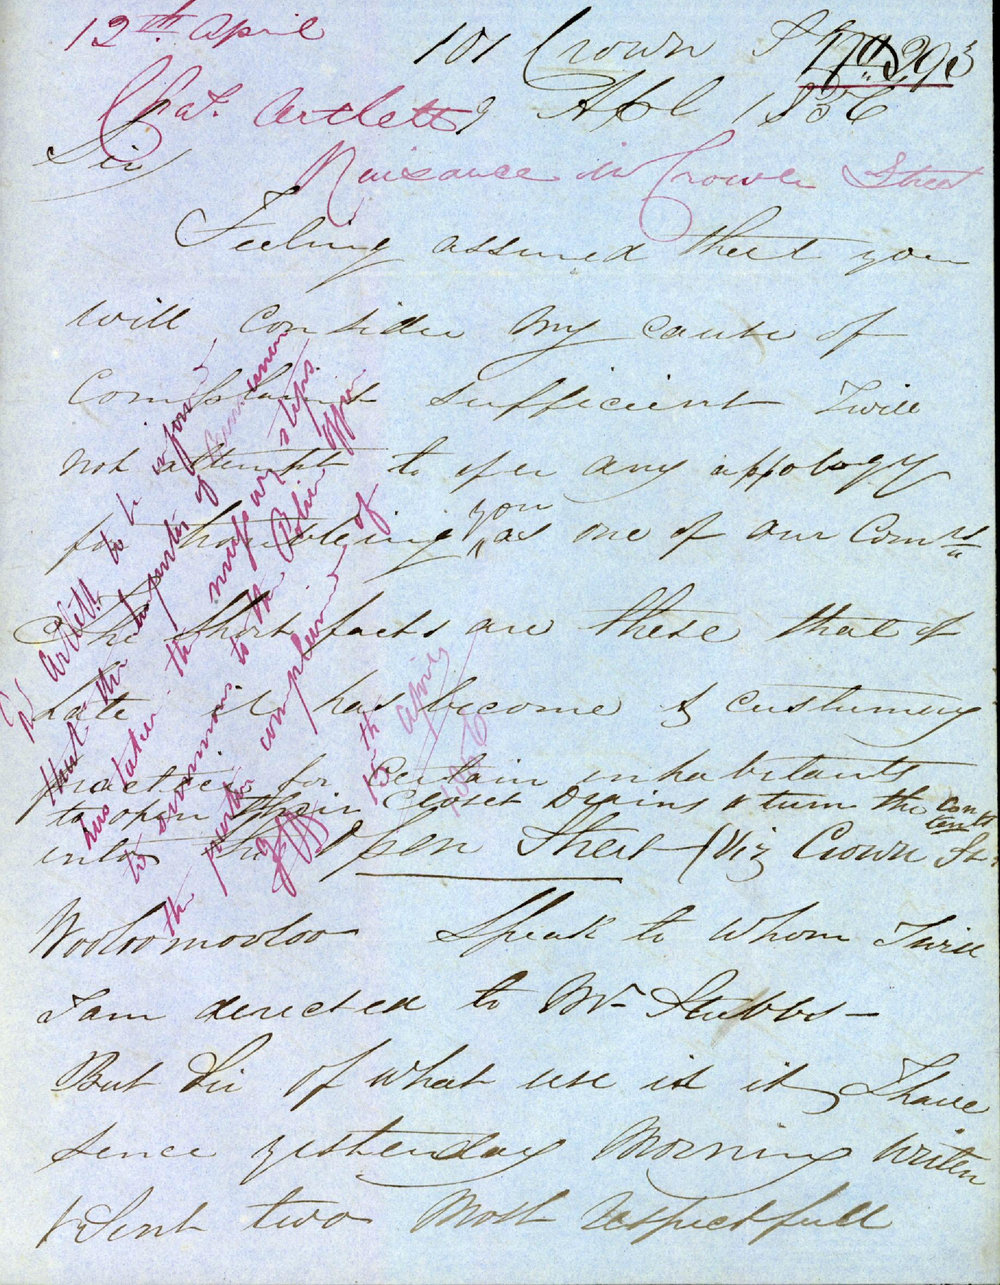 12th April
101 Crown St
No 393
Chas. Artlett 9 Apl 1856
Sir
Nuisance in Crown Street
Feeling assured that you
will consider my cause of
Complaint sufficient I will
not attempt to ofer any appology
for troubleing you as one of our Comrs
The Short facts are these that of
Late it has become a custumery
practice for certain inhabitants
to open their Closet Drains & turn the contents
into the Open Street (Viz Crown St.
Wooloomooloo Speak to whom I will
I am derected to Mr Stubbs—
But Sir of what use is it, I have
sence yesterday Morning writen
& Sent two Most respectfull
Mr Artlett to be informed
that the Inspector of Nuisances
has taken the necessary steps
to summons to the Police Office
the parties complained of
15th April
1856